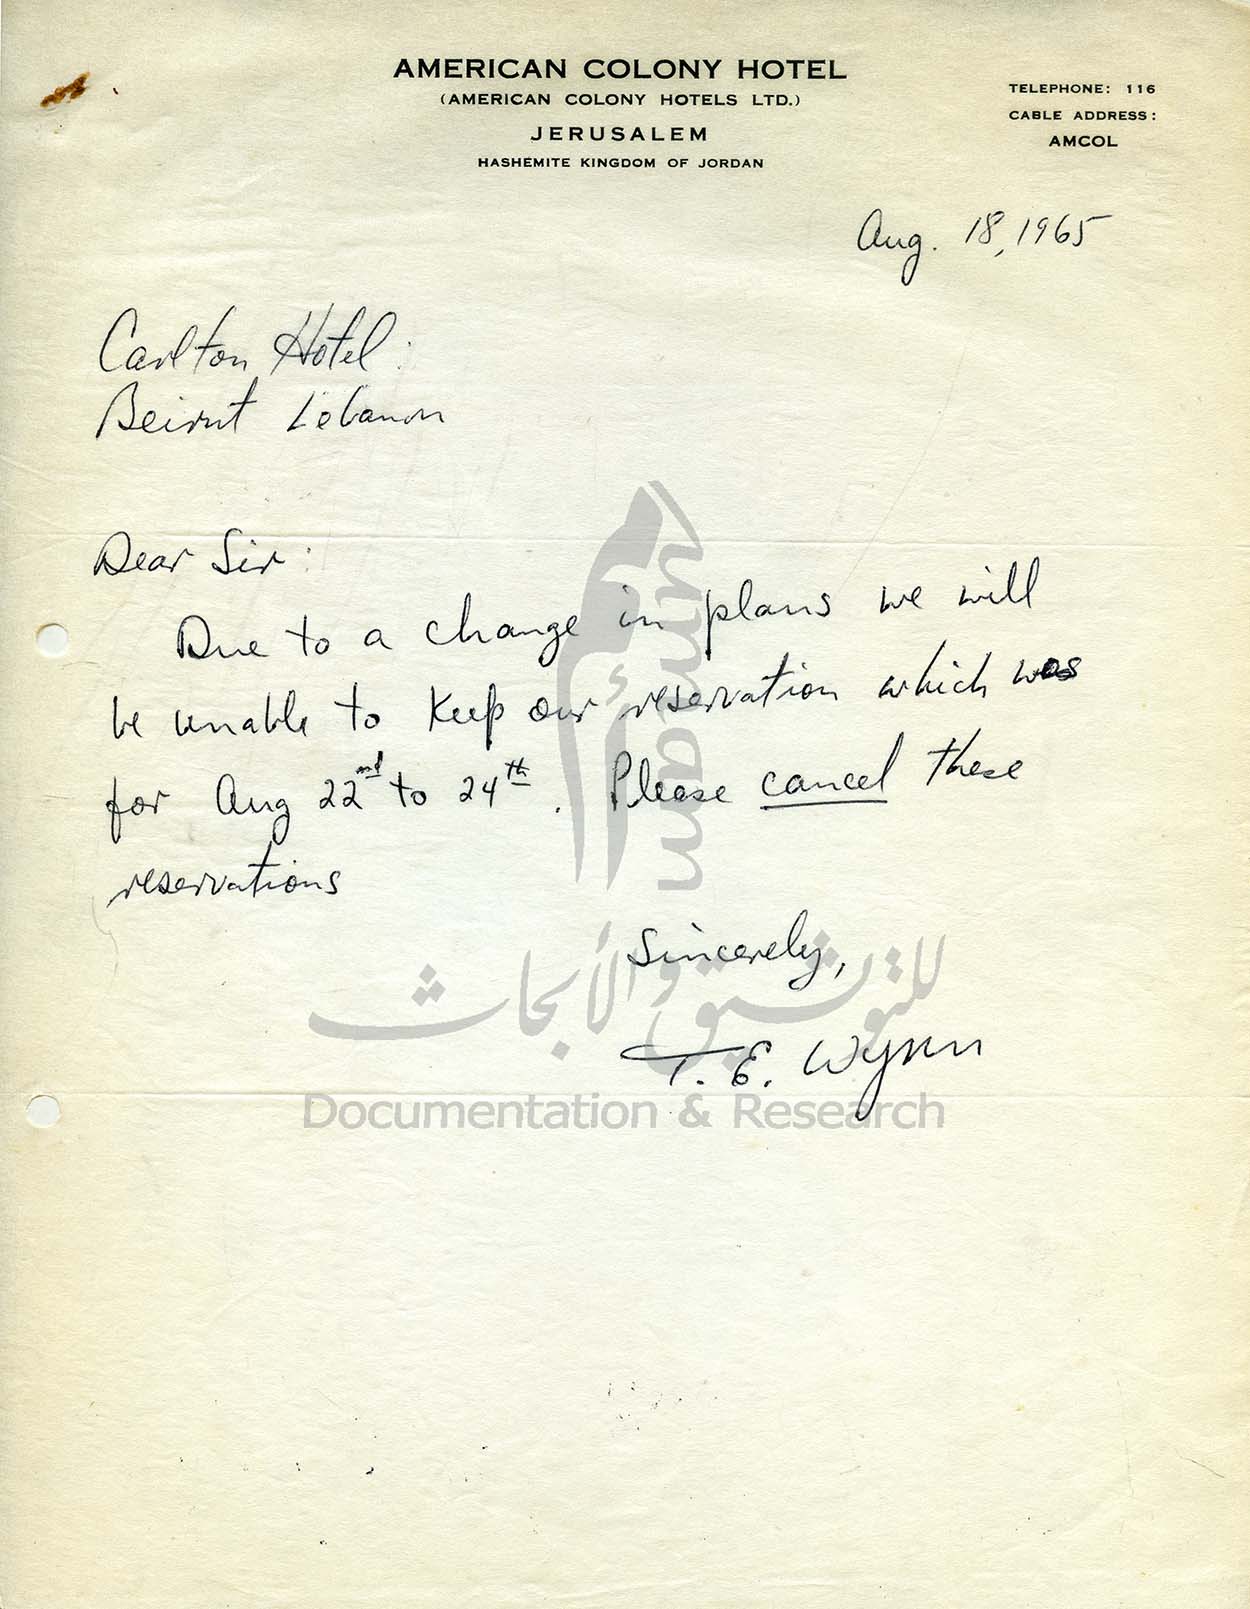 AMERICAN COLONY HOTEL
(AMERICAN COLONY HOTELS LTD.)
JERUSALEM
HASHEMITE KINGDOM OF JORDAN
TELEPHONE: 116
CABLE ADDRESS:
AMCOL
Aug. 18, 1965
Carlton Hotel:
Beirut Lebanon
Dear Sir:
Due to a change in plans we will
be unable to keep our reservation which was
for Aug 22nd to 24th. Please cancel these
reservations
Sincerely,
T. E. Wynn
أ umam
للتوثيق والأبحاث
Documentation & Research